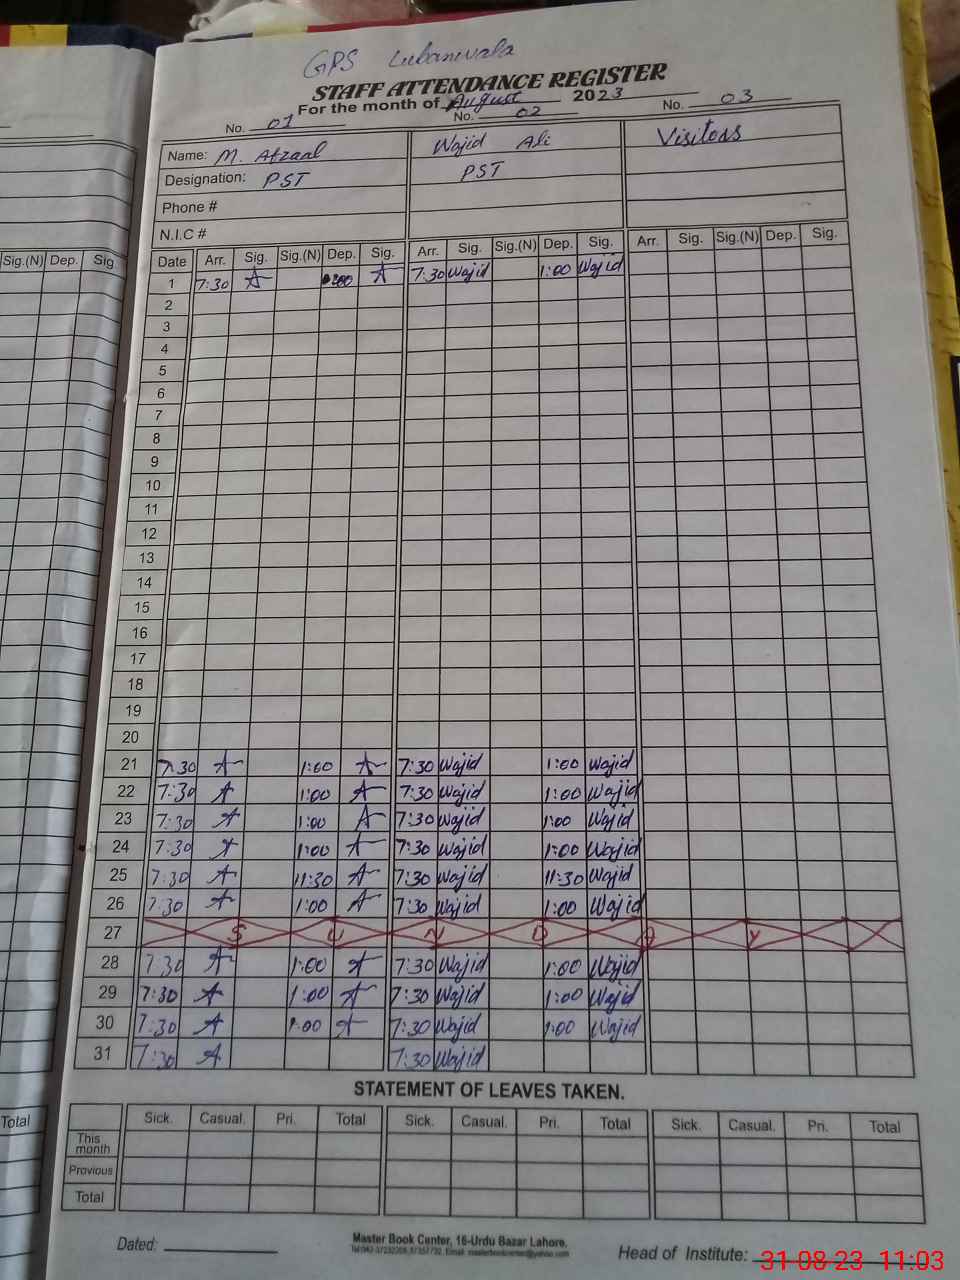 GPS Lubanwala
STAFF ATTENDANCE REGISTER
For the month of August 2023
No. 01 No. 02 No. 03
Name: M. Afzaal Wajid Ali Visitors
Designation: PST PST
Phone #
N.I.C #
Sig.(N) Dep. Sig. Date Arr. Sig. Sig.(N) Dep. Sig. Arr. Sig. Sig.(N) Dep. Sig. Arr. Sig. Sig.(N) Dep. Sig.
1 7:30 A A 7:30 Wajid 1:00 Wajid
2
3
4
5
6
7
8
9
10
11
12
13
14
15
16
17
18
19
20
21 7:30 A 1:00 A 7:30 Wajid 1:00 Wajid
22 7:30 A 1:00 A 7:30 Wajid 1:00 Wajid
23 7:30 A 1:00 A 7:30 Wajid 1:00 Wajid
24 7:30 A 1:00 A 7:30 Wajid 1:00 Wajid
25 7:30 A 11:30 A 7:30 Wajid 11:30 Wajid
26 7:30 A 1:00 A 7:30 Wajid 1:00 Wajid
27 S U N D A Y
28 7:30 A 1:00 A 7:30 Wajid 1:00 Wajid
29 7:30 A 1:00 A 7:30 Wajid 1:00 Wajid
30 7:30 A 1:00 A 7:30 Wajid 1:00 Wajid
31 7:30 A 7:30 Wajid
STATEMENT OF LEAVES TAKEN.
Total Sick. Casual. Pri. Total Sick. Casual. Pri. Total Sick. Casual. Pri. Total
This month
Previous
Total
Dated: Master Book Center, 16-Urdu Bazar Lahore. Head of Institute:
31-08-23 11:03